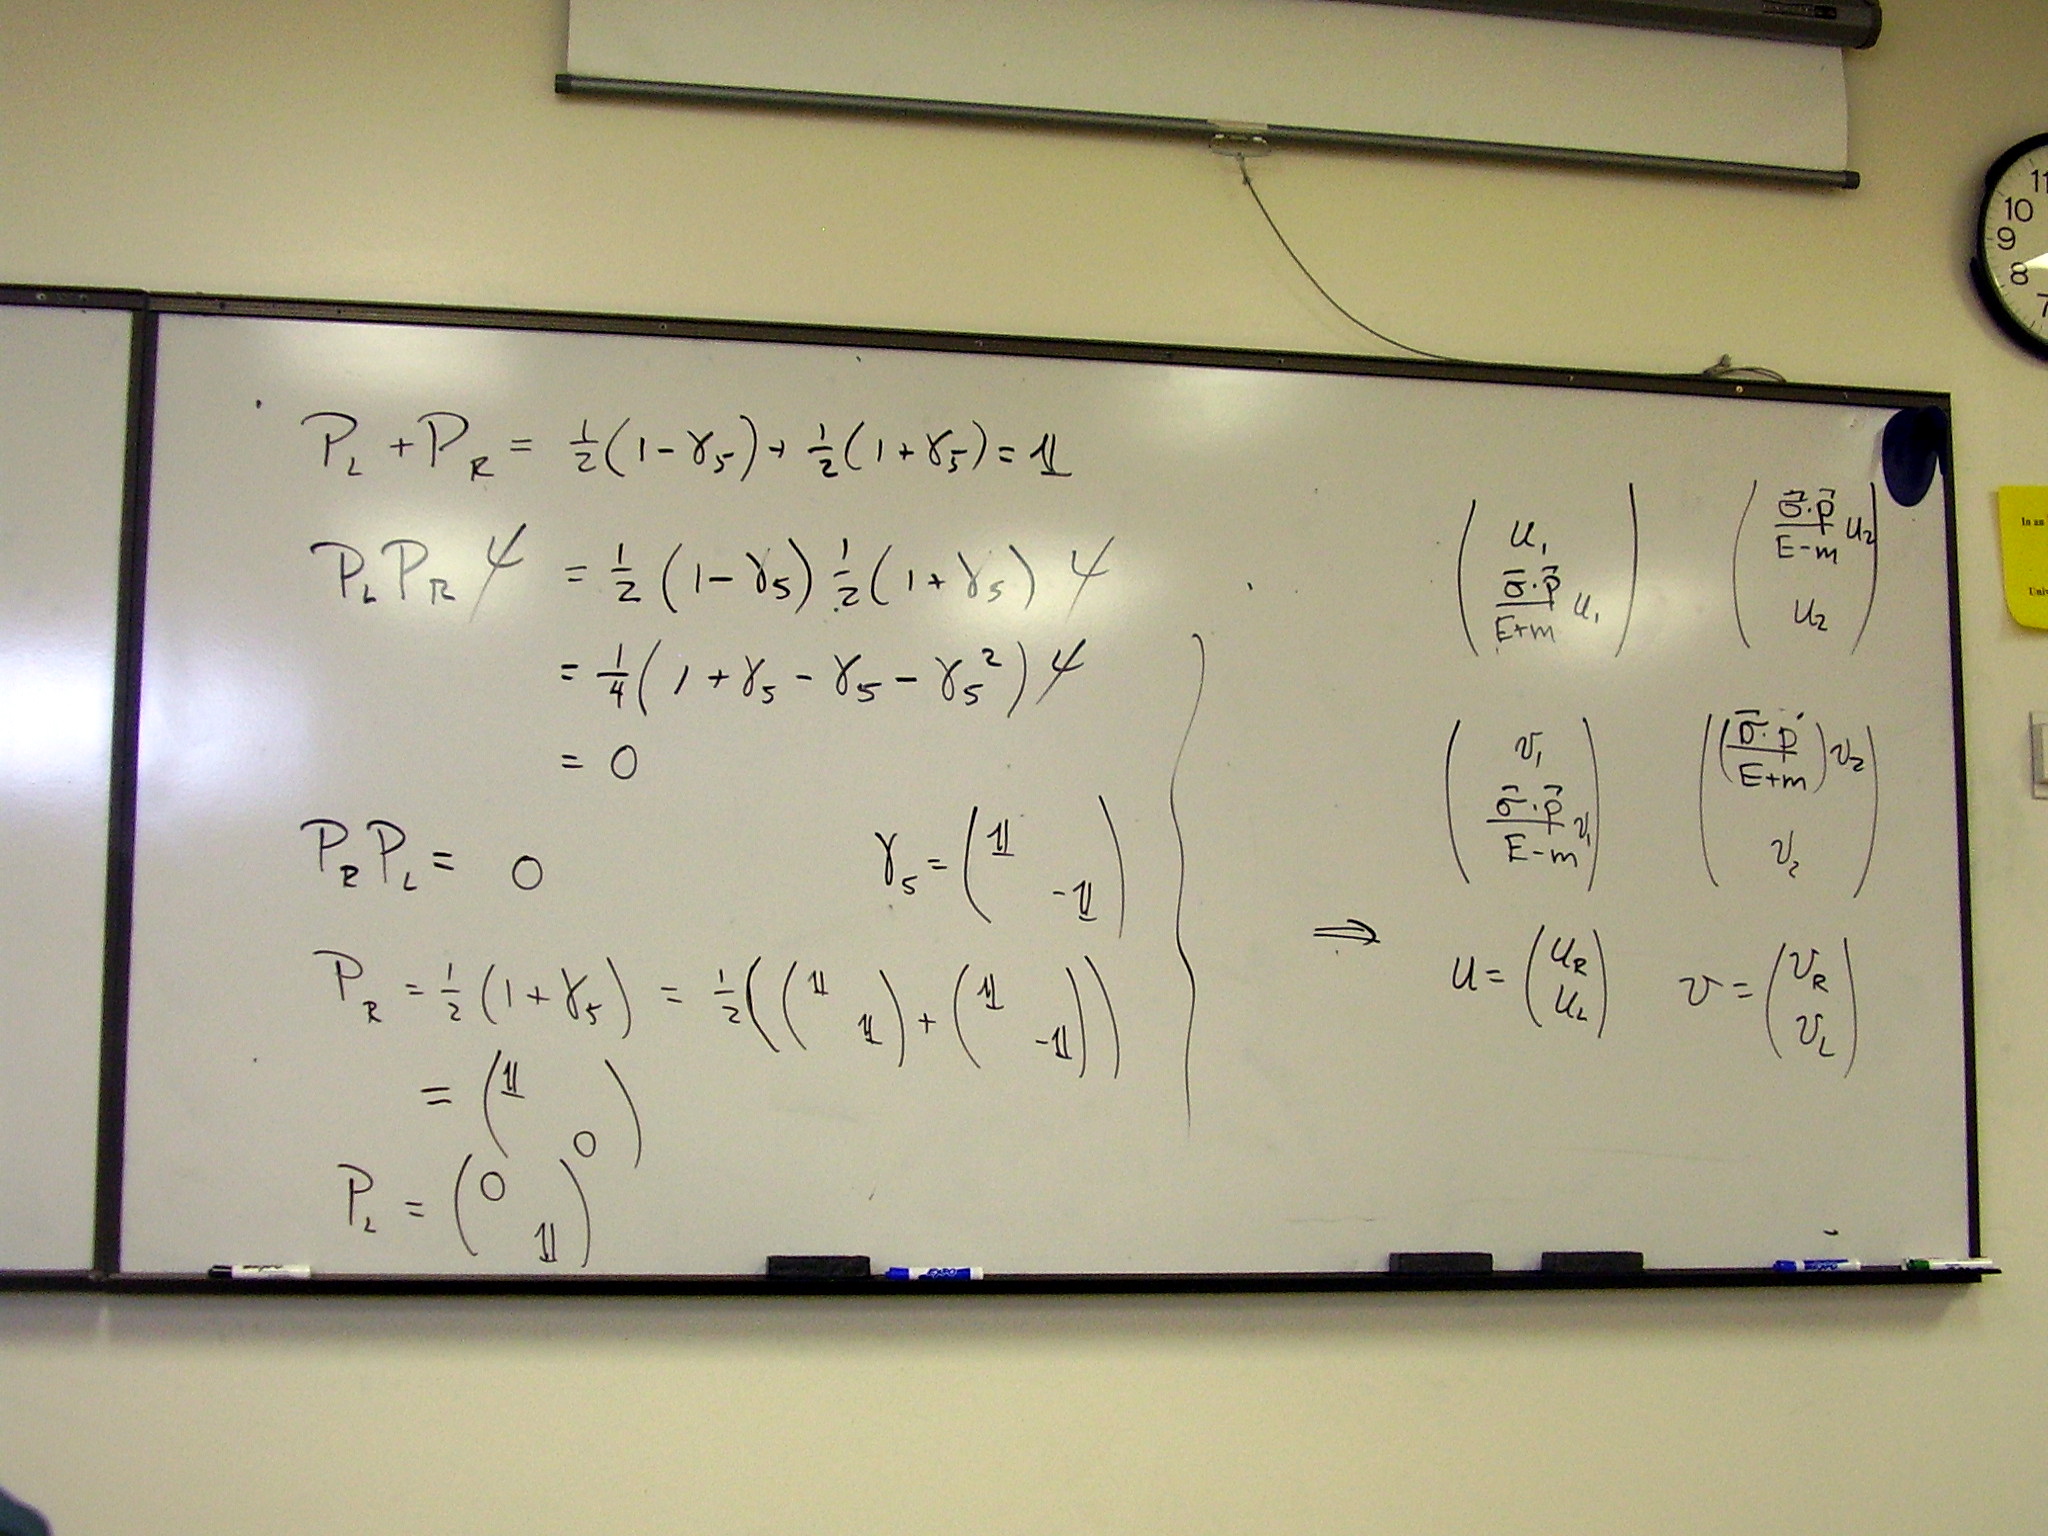 P_L + P_R = 1/2 (1 - γ_5) + 1/2 (1 + γ_5) = 𝟙
P_L P_R ψ = 1/2 (1 - γ_5) 1/2 (1 + γ_5) ψ
= 1/4 (1 + γ_5 - γ_5 - γ_5^2) ψ
= 0
P_R P_L = 0
γ_5 = (𝟙 -𝟙)
P_R = 1/2 (1 + γ_5) = 1/2 ((𝟙 𝟙) + (𝟙 -𝟙))
= (𝟙 0)
P_L = (0 𝟙)
(u_1
σ⃗·p⃗/E+m u_1)
(σ⃗·p⃗/E-m u_2
u_2)
(v_1
σ⃗·p⃗/E-m v_1)
((σ⃗·p⃗/E+m) v_2
v_2)
⇒ u = (u_R u_L) v = (v_R v_L)
11
10
9
8
7
In an
EXPO